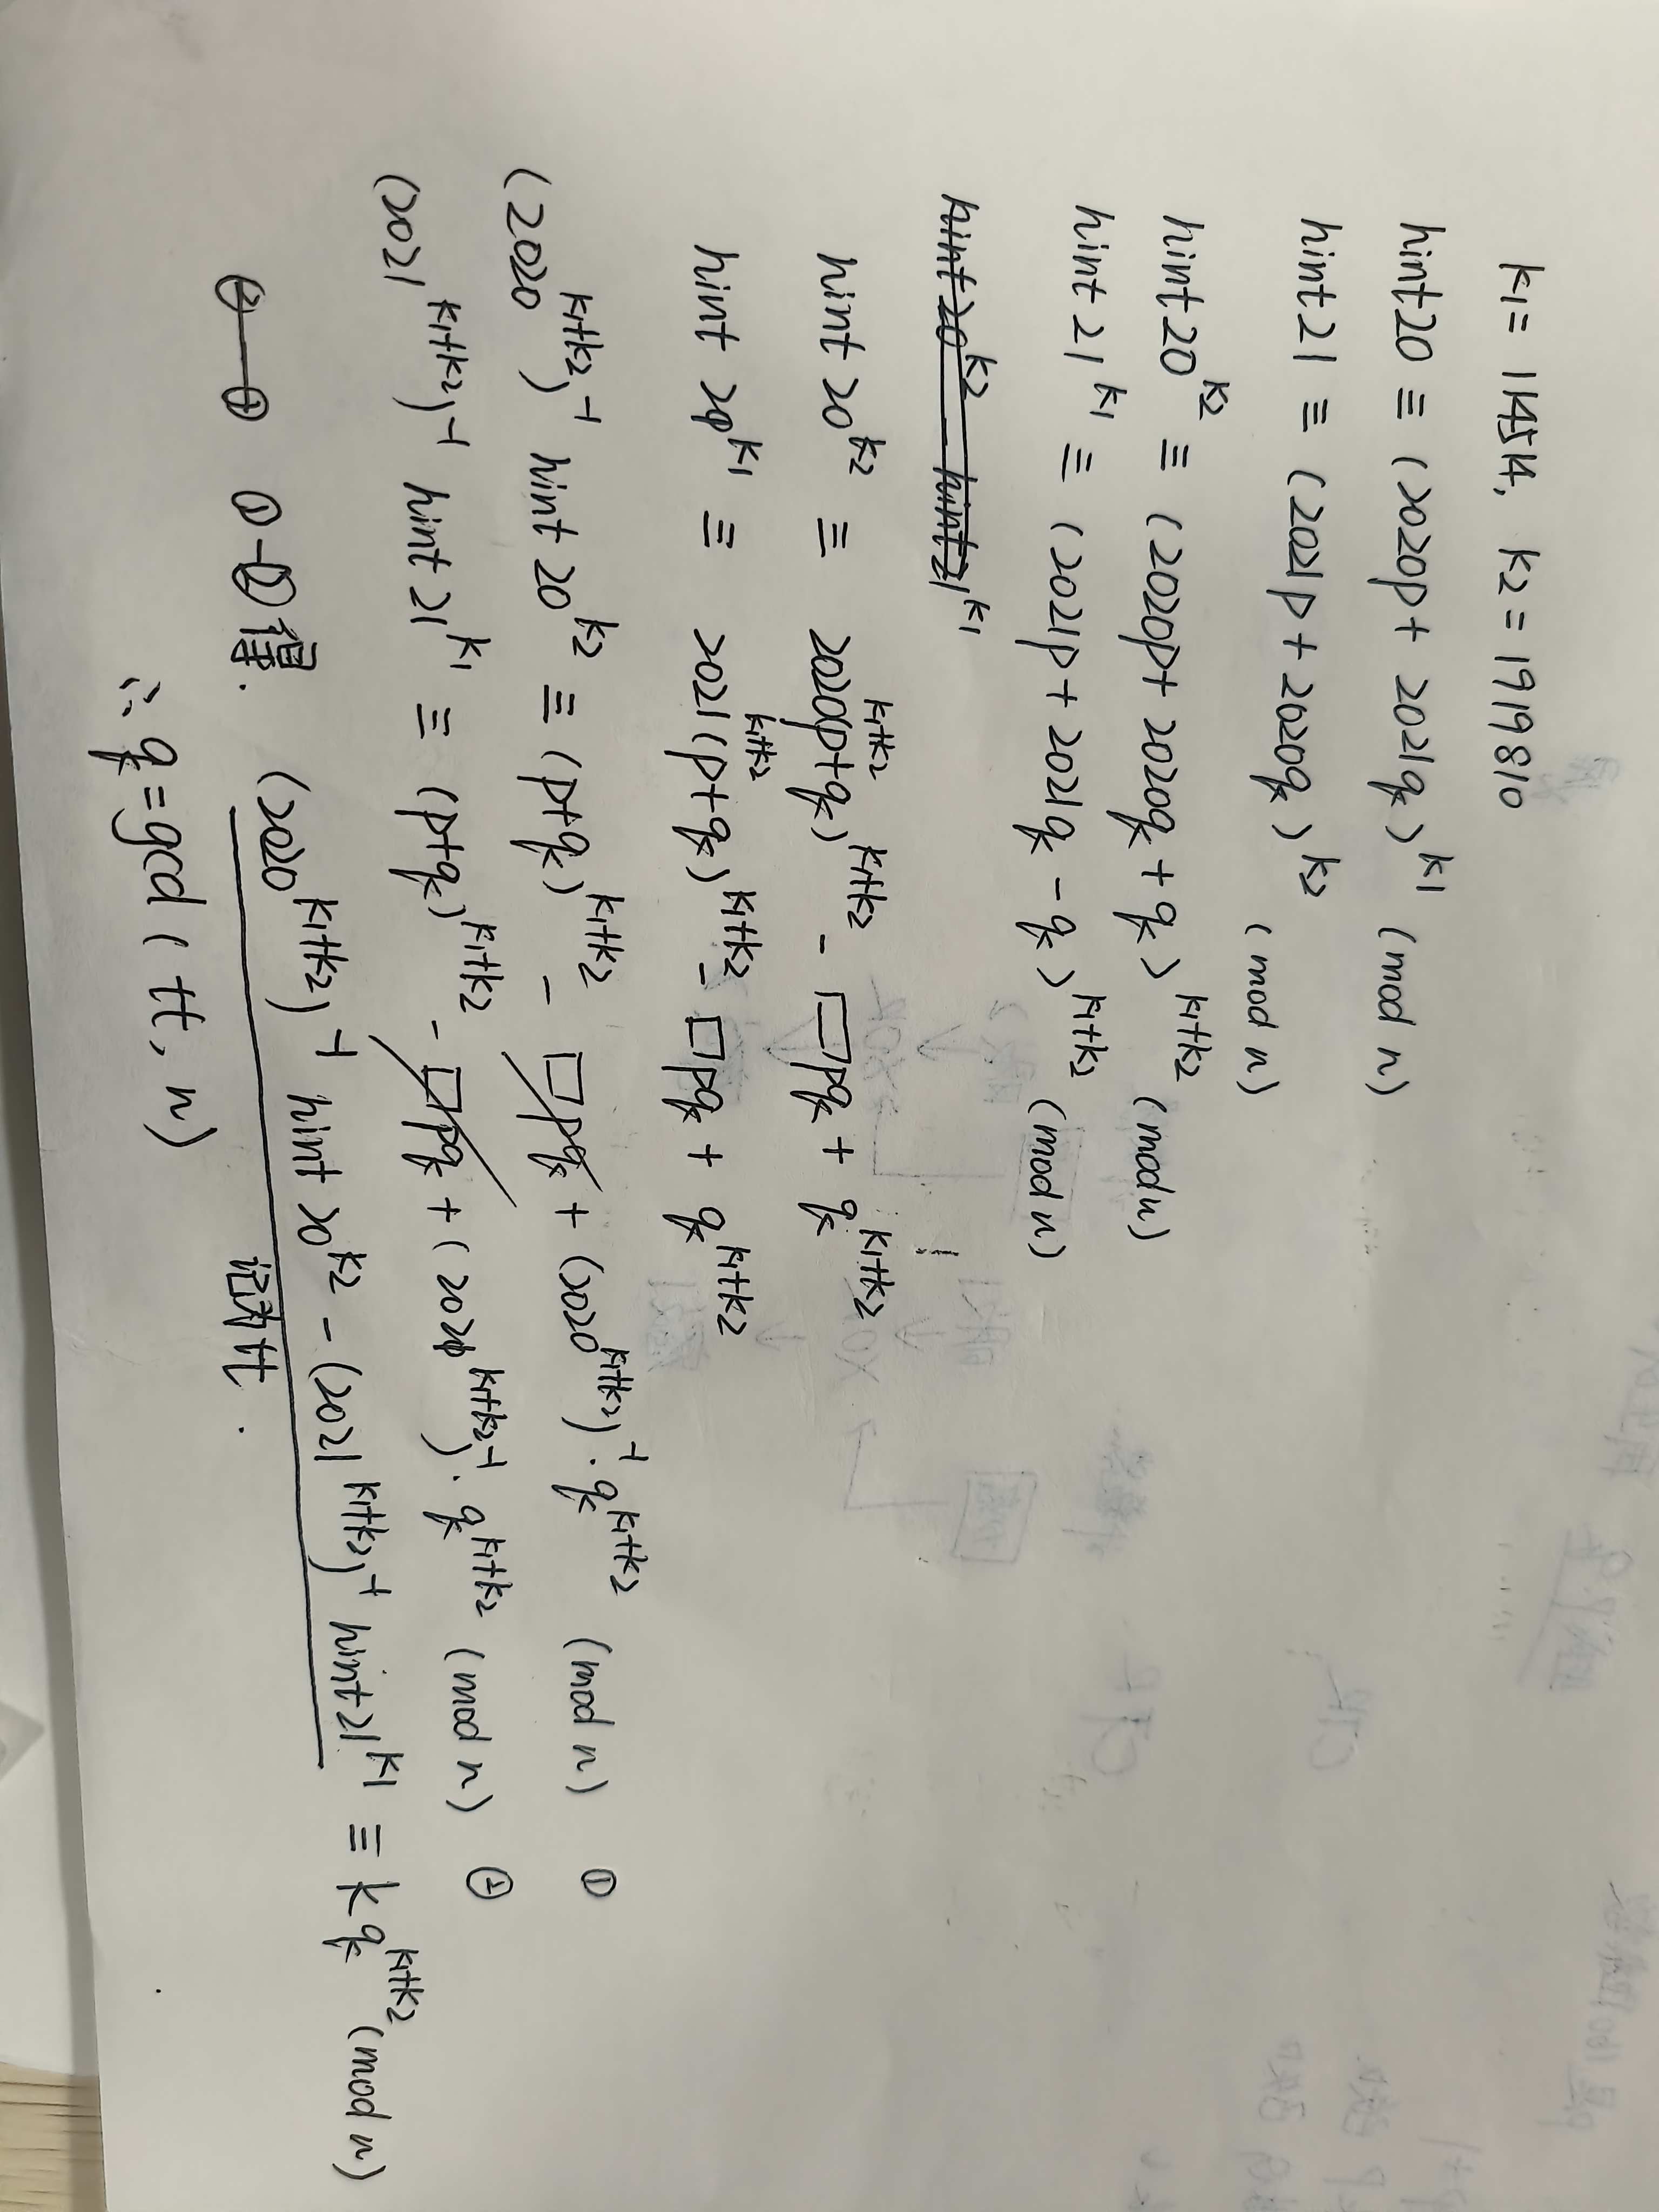 k1 = 114514, k2 = 1919810
hint20 ≡ (2020p + 2021q)^k1 (mod n)
hint21 ≡ (2021p + 2020q)^k2 (mod n)
hint20^k2 ≡ (2020p + 2020q + q)^k1+k2 (mod n)
hint21^k1 ≡ (2021p + 2021q - q)^k1+k2 (mod n)
hint20^k2 hint21^k1
hint20^k2 ≡ 2020^k1+k2 (p+q)^k1+k2 - □pq + q^k1+k2
hint21^k1 ≡ 2021^k1+k2 (p+q)^k1+k2 - □pq + q^k1+k2
(2020^k1+k2)^-1 hint20^k2 ≡ (p+q)^k1+k2 - □pq + (2020^k1+k2)^-1 · q^k1+k2 (mod n) ①
(2021^k1+k2)^-1 hint21^k1 ≡ (p+q)^k1+k2 - □pq + (2021^k1+k2)^-1 · q^k1+k2 (mod n) ②
②-① ①-②得. (2020^k1+k2)^-1 hint20^k2 - (2021^k1+k2)^-1 hint21^k1 ≡ kq^k1+k2 (mod n)
记为tt.
∴ q = gcd(tt, n)